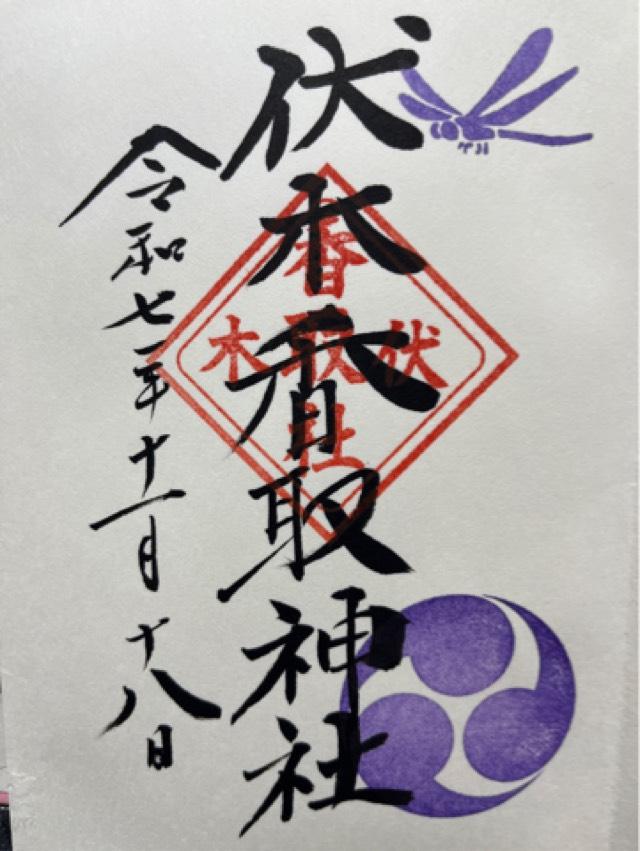 伏木香取神社
令和七年十一月十八日
香
伏 取 木
社